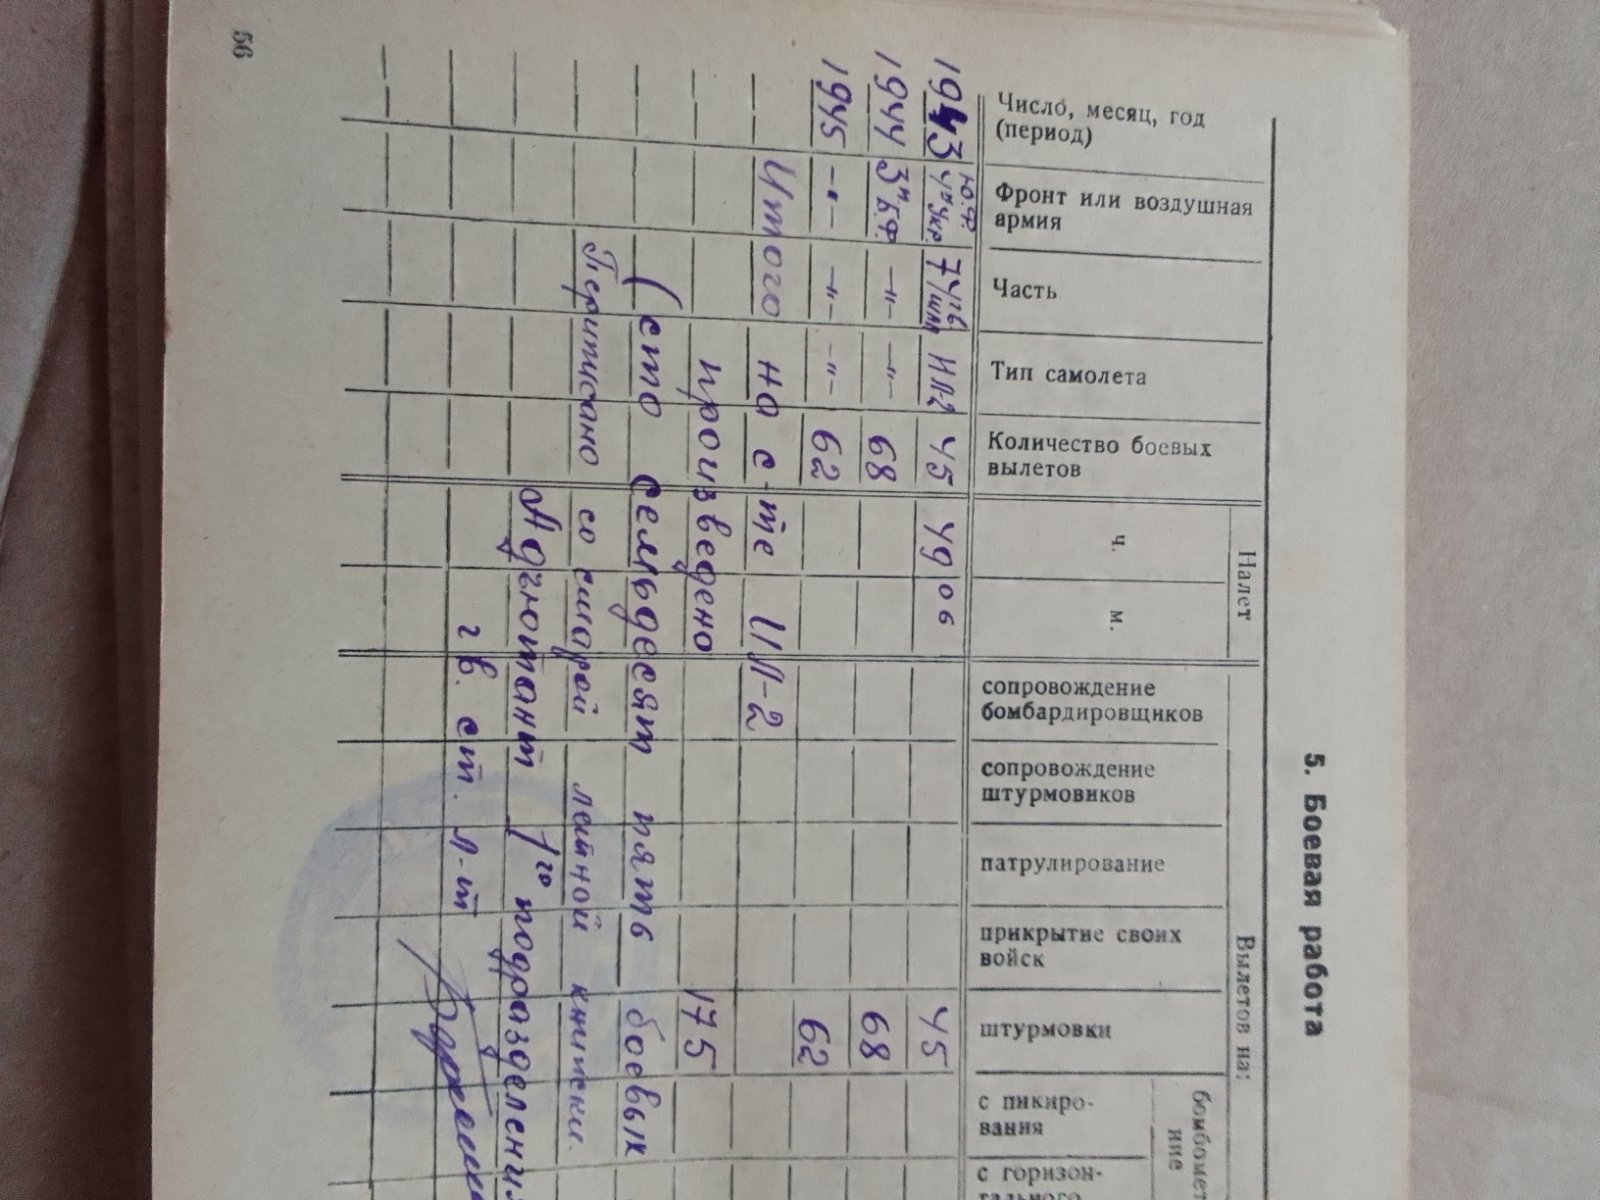 5. Боевая работа
Число, месяц, год (период)
Фронт или воздушная армия
Часть
Тип самолета
Количество боевых вылетов
Налет
ч.
м.
Вылетов на:
сопровождение бомбардировщиков
сопровождение штурмовиков
патрулирование
прикрытие своих войск
штурмовки
бомбомет
ние
с пикиро-
вания
с горизон-
тального
1943 Ю.Ф. 4й Укр. 7 гв. шап ИЛ-2 45 49 06 45
1944 3й Б.Ф. -"- -"- 68 68
1945 -"- -"- -"- 62 62
Итого на с-те ИЛ-2
произведено 175
(сто семьдесят пять боевых
Переписано со старой летной книжки.
Адъютант 1го подразделения
гв. ст. л-т
56